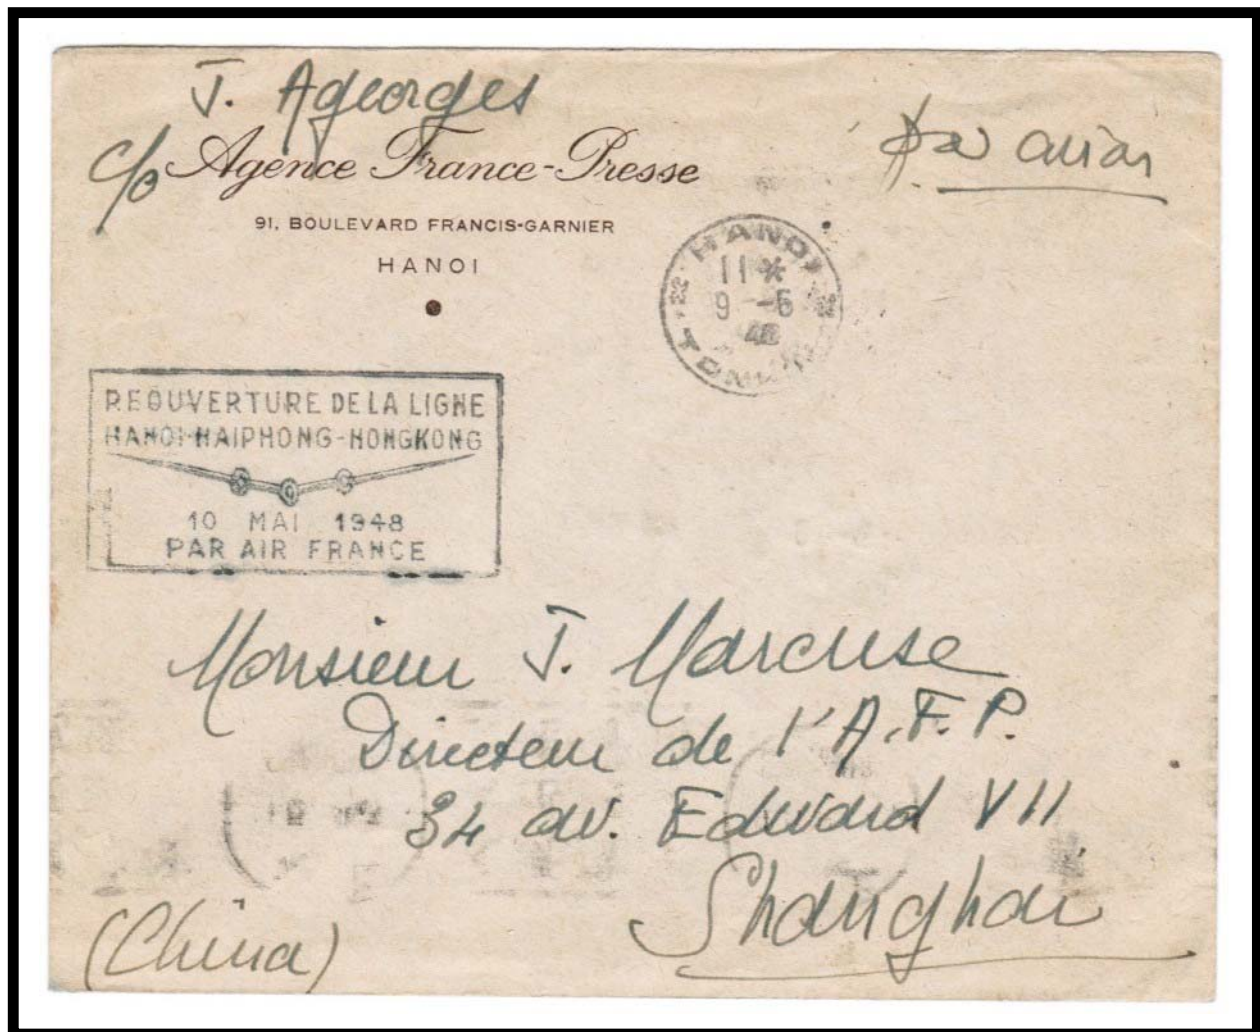 J. Ageorges
c/o Agence France-Presse
par avion
91, BOULEVARD FRANCIS-GARNIER
HANOI
HANOI
11 *
9 -6
48
TONKIN
REOUVERTURE DE LA LIGNE
HANOI-HAIPHONG-HONGKONG
10 MAI 1948
PAR AIR FRANCE
Monsieur J. Marcuse
Directeur de l'A.F.P.
34 av. Edward VII
Shanghai
(China)